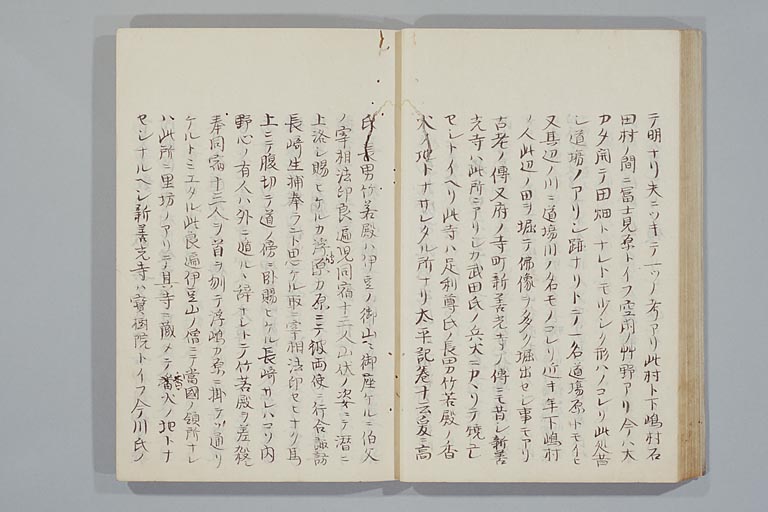 テ明ナリ夫ニツキテ一ツノ考アリ此村ト下嶋村石
田村ノ間ニ冨士見原トイフ空閑ノ艸野アリ今ハ大
カタ開テ田畑トナレトモ少シノ形ハノコレリ此処昔
シ道場ノアリシ跡ナリトテ一名道場原トモイヒ
又其辺ノ川ニ道場川ノ名モノコレリ近キ年下嶋村
ノ人此辺ノ田ヲ堀テ佛像ヲ多ク堀出セシ事モアリ
古老ノ傳又府ノ寺町新善光寺ノ傳ニモ昔シ新善
光寺ハ此所ニアリシカ武田氏ノ兵火ニカヽリテ焼亡
セシトイヘリ此寺ハ足利尊氏ノ長男竹若殿ノ香
火ノ地トナサレタル所ナリ太平記巻十云爰ニ高
氏ノ長男竹若殿ハ伊豆ノ御山ニ御座ケルニ伯父
ノ宰相法印良遍児同宿十三人山伏ノ姿ニテ潜ニ
上洛シ賜ヒケルカ浮嶋カ原ニテ彼両使ニ行合諏訪
長崎生捕奉ラント思ケル取ニ宰相法印セヒナク馬
上ニテ腹切テ道ノ傍ニ臥賜ヒケル長崎サレハコソ内
野心ノ有人ハ外ニ遁ルヽ辞ナシトテ竹若殿ヲ差殺
奉同宿十三人ヲ首ヲ刎テ浮嶋カ原ニ掛テソ通リ
ケルトミエタル此良遍伊豆山ノ僧ニテ當國ノ領所ナレ
ハ此所ニ里坊ノアリテ其寺ニ蔵メテ香火ノ地トナ
セシナルヘシ新善光寺ハ寳樹院トイフ今川氏ノ